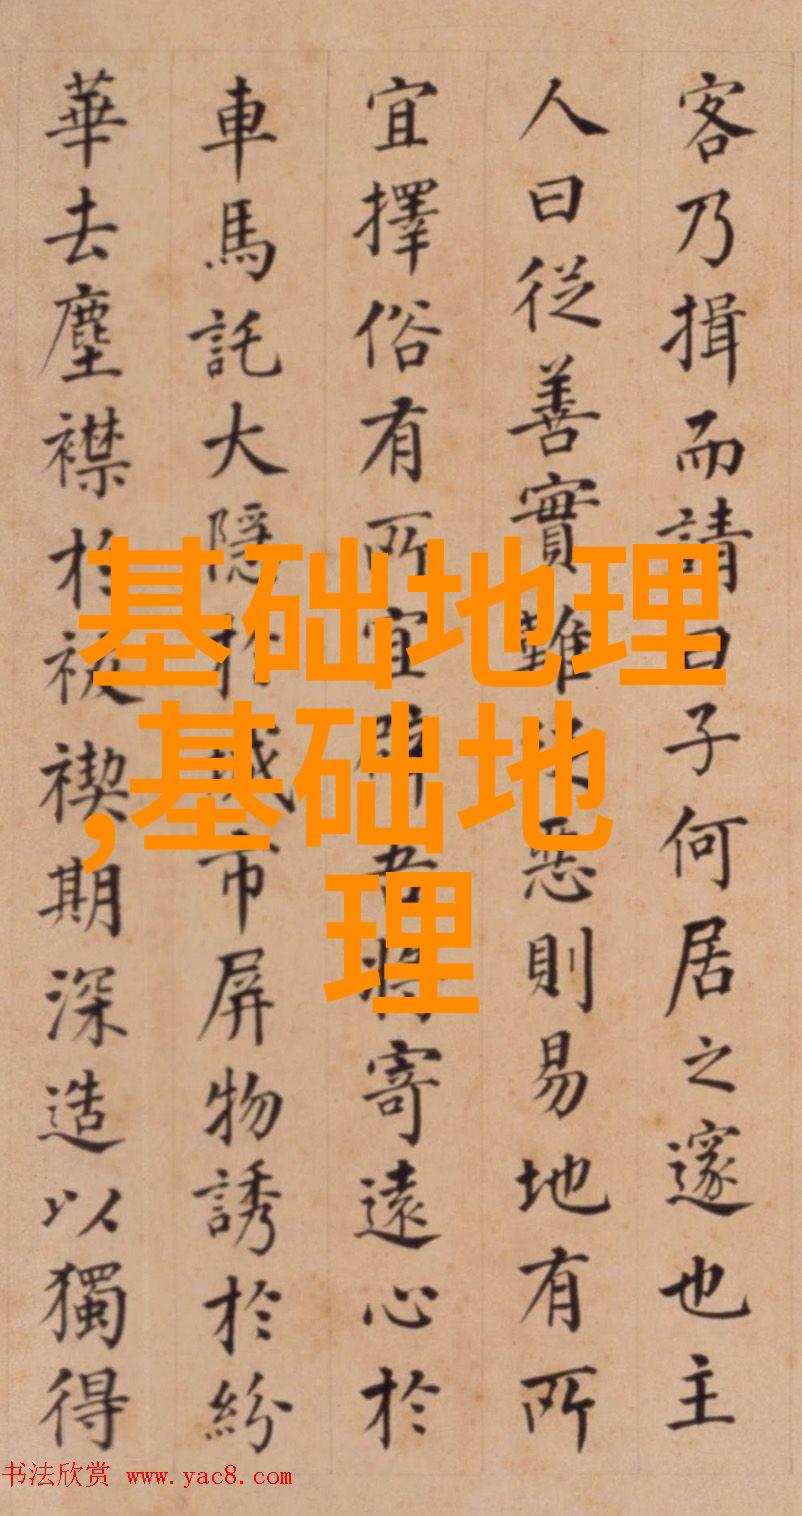 客乃揖而請曰子何居之邃也主
人曰從善實難從惡則易地有所
宜擇俗有所宜辟吾將寄遠心於
車馬託大隱於城市屏物誘於紛
華去塵襟於祓禊期深造以獨得
基础地理
,基础地
理
书法欣赏 www.yac8.com